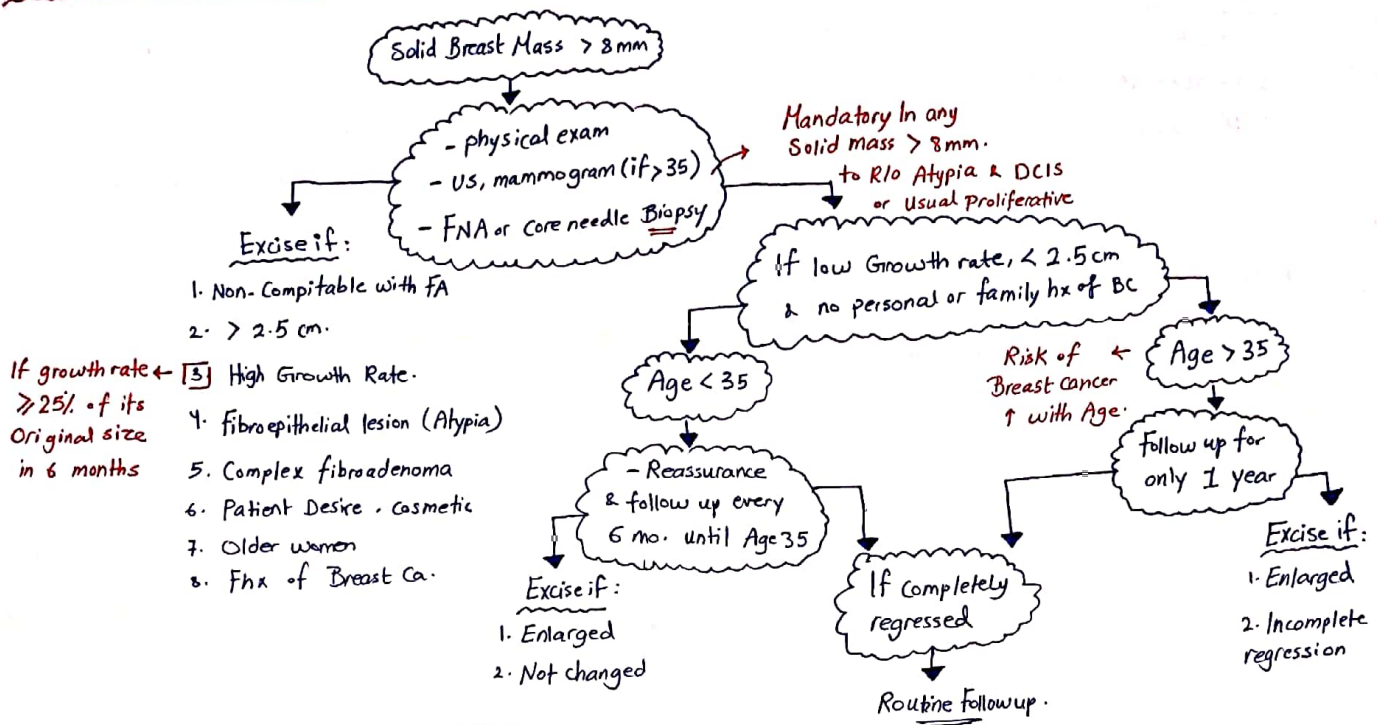 Solid Breast Mass > 8mm
- physical exam
- US, mammogram (if > 35)
- FNA or core needle Biopsy
Mandatory In any
Solid mass > 8mm.
to R/o Atypia & DCIS
or usual proliferative
Excise if:
1. Non-Compitable with FA
2. > 2.5 cm.
3 High Growth Rate.
4. Fibroepithelial lesion (Atypia)
5. Complex fibroadenoma
6. Patient Desire. cosmetic
7. Older women
8. Fhx of Breast Ca.
If growth rate
≥25% of its
Original size
in 6 months
If low Growth rate, < 2.5cm
& no personal or family hx of BC
Age < 35
- Reassurance
& follow up every
6 mo. until Age 35
Excise if:
1. Enlarged
2. Not changed
Age > 35
Risk of
Breast cancer
↑ with Age.
Follow up for
only 1 year
Excise if:
1. Enlarged
2. Incomplete
regression
If completely
regressed
Routine Followup.